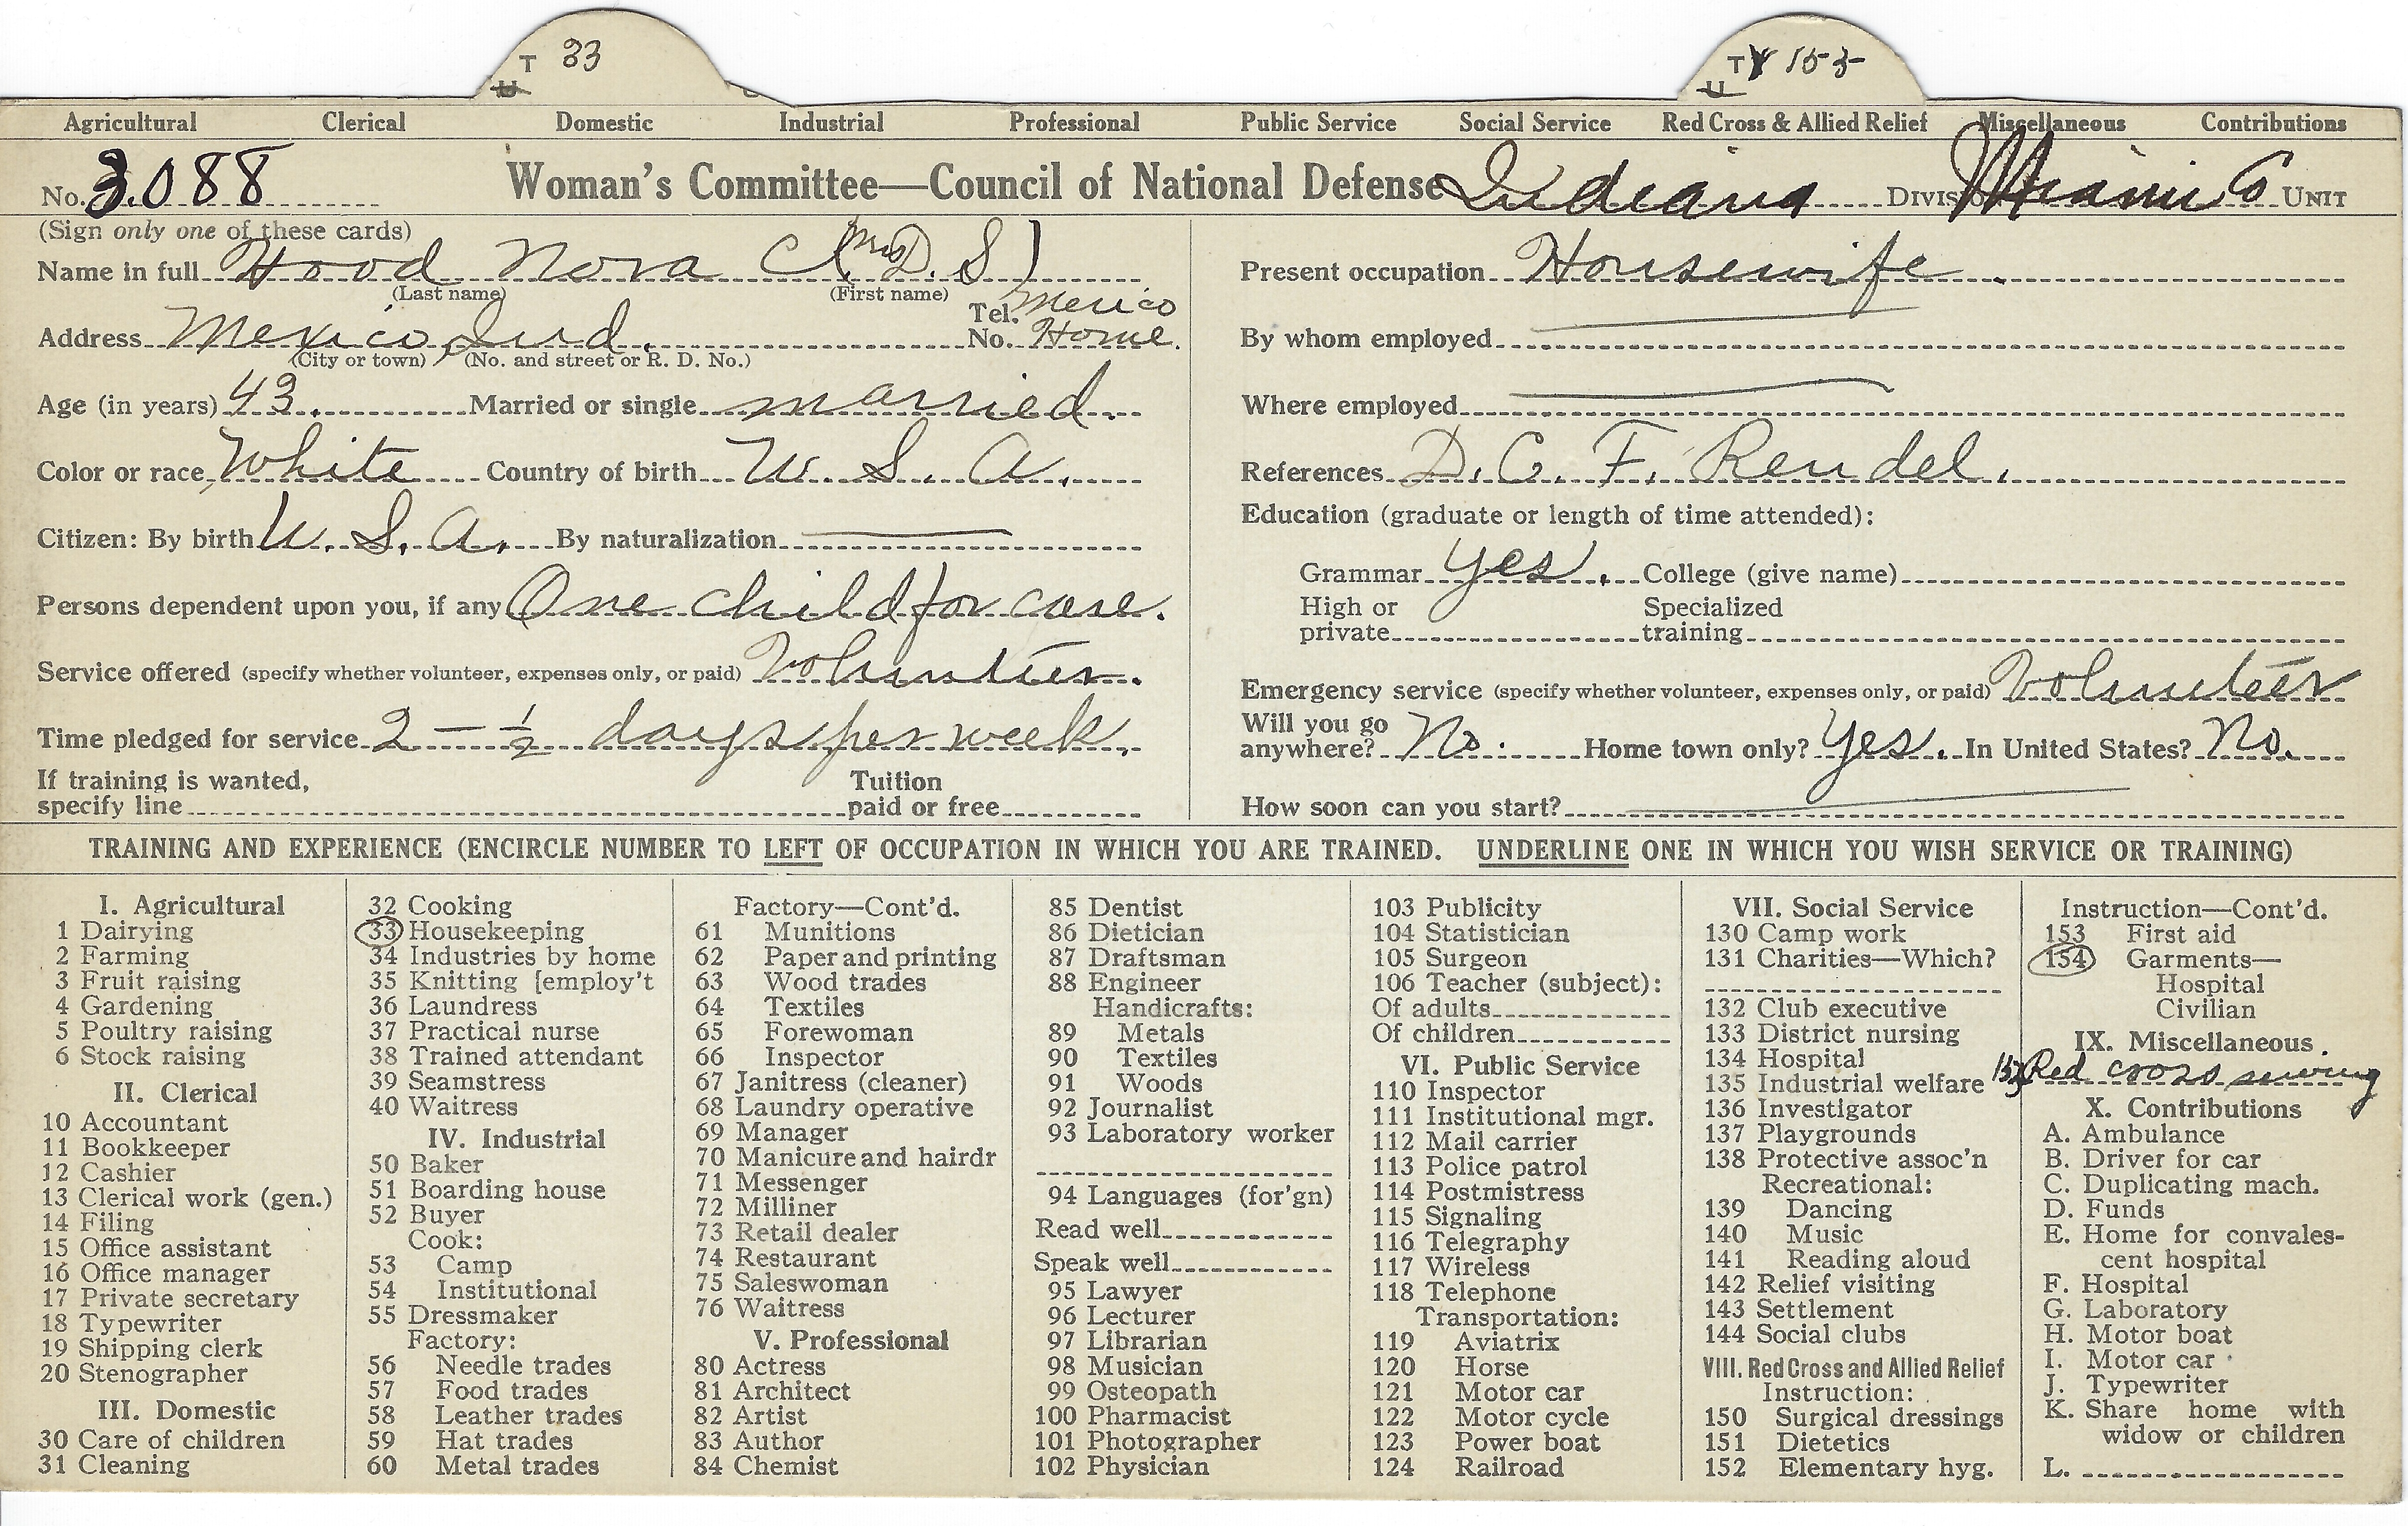 T 33
U
TY 155
U
Agricultural Clerical Domestic Industrial Professional Public Service Social Service Red Cross & Allied Relief Miscellaneous Contributions
No. 3088 Woman's Committee—Council of National Defense Indiana Division Miami Co Unit
(Sign only one of these cards)
Name in full Hood Nora C (Mrs D. S)
(Last name) (First name)
Address Mexico, Ind. Tel. No. Mexico Home.
(City or town) (No. and street or R. D. No.)
Age (in years) 43. Married or single married.
Color or race White Country of birth U. S. A.
Citizen: By birth U. S. A. By naturalization
Persons dependent upon you, if any One child for care.
Service offered (specify whether volunteer, expenses only, or paid) Volunteer.
Time pledged for service 2 — ½ days per week.
If training is wanted, specify line Tuition paid or free
Present occupation Housewife.
By whom employed
Where employed
References D. C. F. Rendel.
Education (graduate or length of time attended):
Grammar Yes. College (give name)
High or private Specialized training
Emergency service (specify whether volunteer, expenses only, or paid) Volunteer
Will you go anywhere? No. Home town only? Yes. In United States? No.
How soon can you start?
TRAINING AND EXPERIENCE (ENCIRCLE NUMBER TO LEFT OF OCCUPATION IN WHICH YOU ARE TRAINED. UNDERLINE ONE IN WHICH YOU WISH SERVICE OR TRAINING)
I. Agricultural
1 Dairying
2 Farming
3 Fruit raising
4 Gardening
5 Poultry raising
6 Stock raising
II. Clerical
10 Accountant
11 Bookkeeper
12 Cashier
13 Clerical work (gen.)
14 Filing
15 Office assistant
16 Office manager
17 Private secretary
18 Typewriter
19 Shipping clerk
20 Stenographer
III. Domestic
30 Care of children
31 Cleaning
32 Cooking
33 Housekeeping
34 Industries by home
35 Knitting [employ't
36 Laundress
37 Practical nurse
38 Trained attendant
39 Seamstress
40 Waitress
IV. Industrial
50 Baker
51 Boarding house
52 Buyer
Cook:
53 Camp
54 Institutional
55 Dressmaker
Factory:
56 Needle trades
57 Food trades
58 Leather trades
59 Hat trades
60 Metal trades
Factory—Cont'd.
61 Munitions
62 Paper and printing
63 Wood trades
64 Textiles
65 Forewoman
66 Inspector
67 Janitress (cleaner)
68 Laundry operative
69 Manager
70 Manicure and hairdr
71 Messenger
72 Milliner
73 Retail dealer
74 Restaurant
75 Saleswoman
76 Waitress
V. Professional
80 Actress
81 Architect
82 Artist
83 Author
84 Chemist
85 Dentist
86 Dietician
87 Draftsman
88 Engineer
Handicrafts:
89 Metals
90 Textiles
91 Woods
92 Journalist
93 Laboratory worker
94 Languages (for'gn)
Read well
Speak well
95 Lawyer
96 Lecturer
97 Librarian
98 Musician
99 Osteopath
100 Pharmacist
101 Photographer
102 Physician
103 Publicity
104 Statistician
105 Surgeon
106 Teacher (subject):
Of adults
Of children
VI. Public Service
110 Inspector
111 Institutional mgr.
112 Mail carrier
113 Police patrol
114 Postmistress
115 Signaling
116 Telegraphy
117 Wireless
118 Telephone
Transportation:
119 Aviatrix
120 Horse
121 Motor car
122 Motor cycle
123 Power boat
124 Railroad
VII. Social Service
130 Camp work
131 Charities—Which?
132 Club executive
133 District nursing
134 Hospital
135 Industrial welfare
136 Investigator
137 Playgrounds
138 Protective assoc'n
Recreational:
139 Dancing
140 Music
141 Reading aloud
142 Relief visiting
143 Settlement
144 Social clubs
VIII. Red Cross and Allied Relief
Instruction:
150 Surgical dressings
151 Dietetics
152 Elementary hyg.
Instruction—Cont'd.
153 First aid
154 Garments—
Hospital
Civilian
IX. Miscellaneous
Red cross sewing
X. Contributions
A. Ambulance
B. Driver for car
C. Duplicating mach.
D. Funds
E. Home for convales-
cent hospital
F. Hospital
G. Laboratory
H. Motor boat
I. Motor car
J. Typewriter
K. Share home with
widow or children
L.